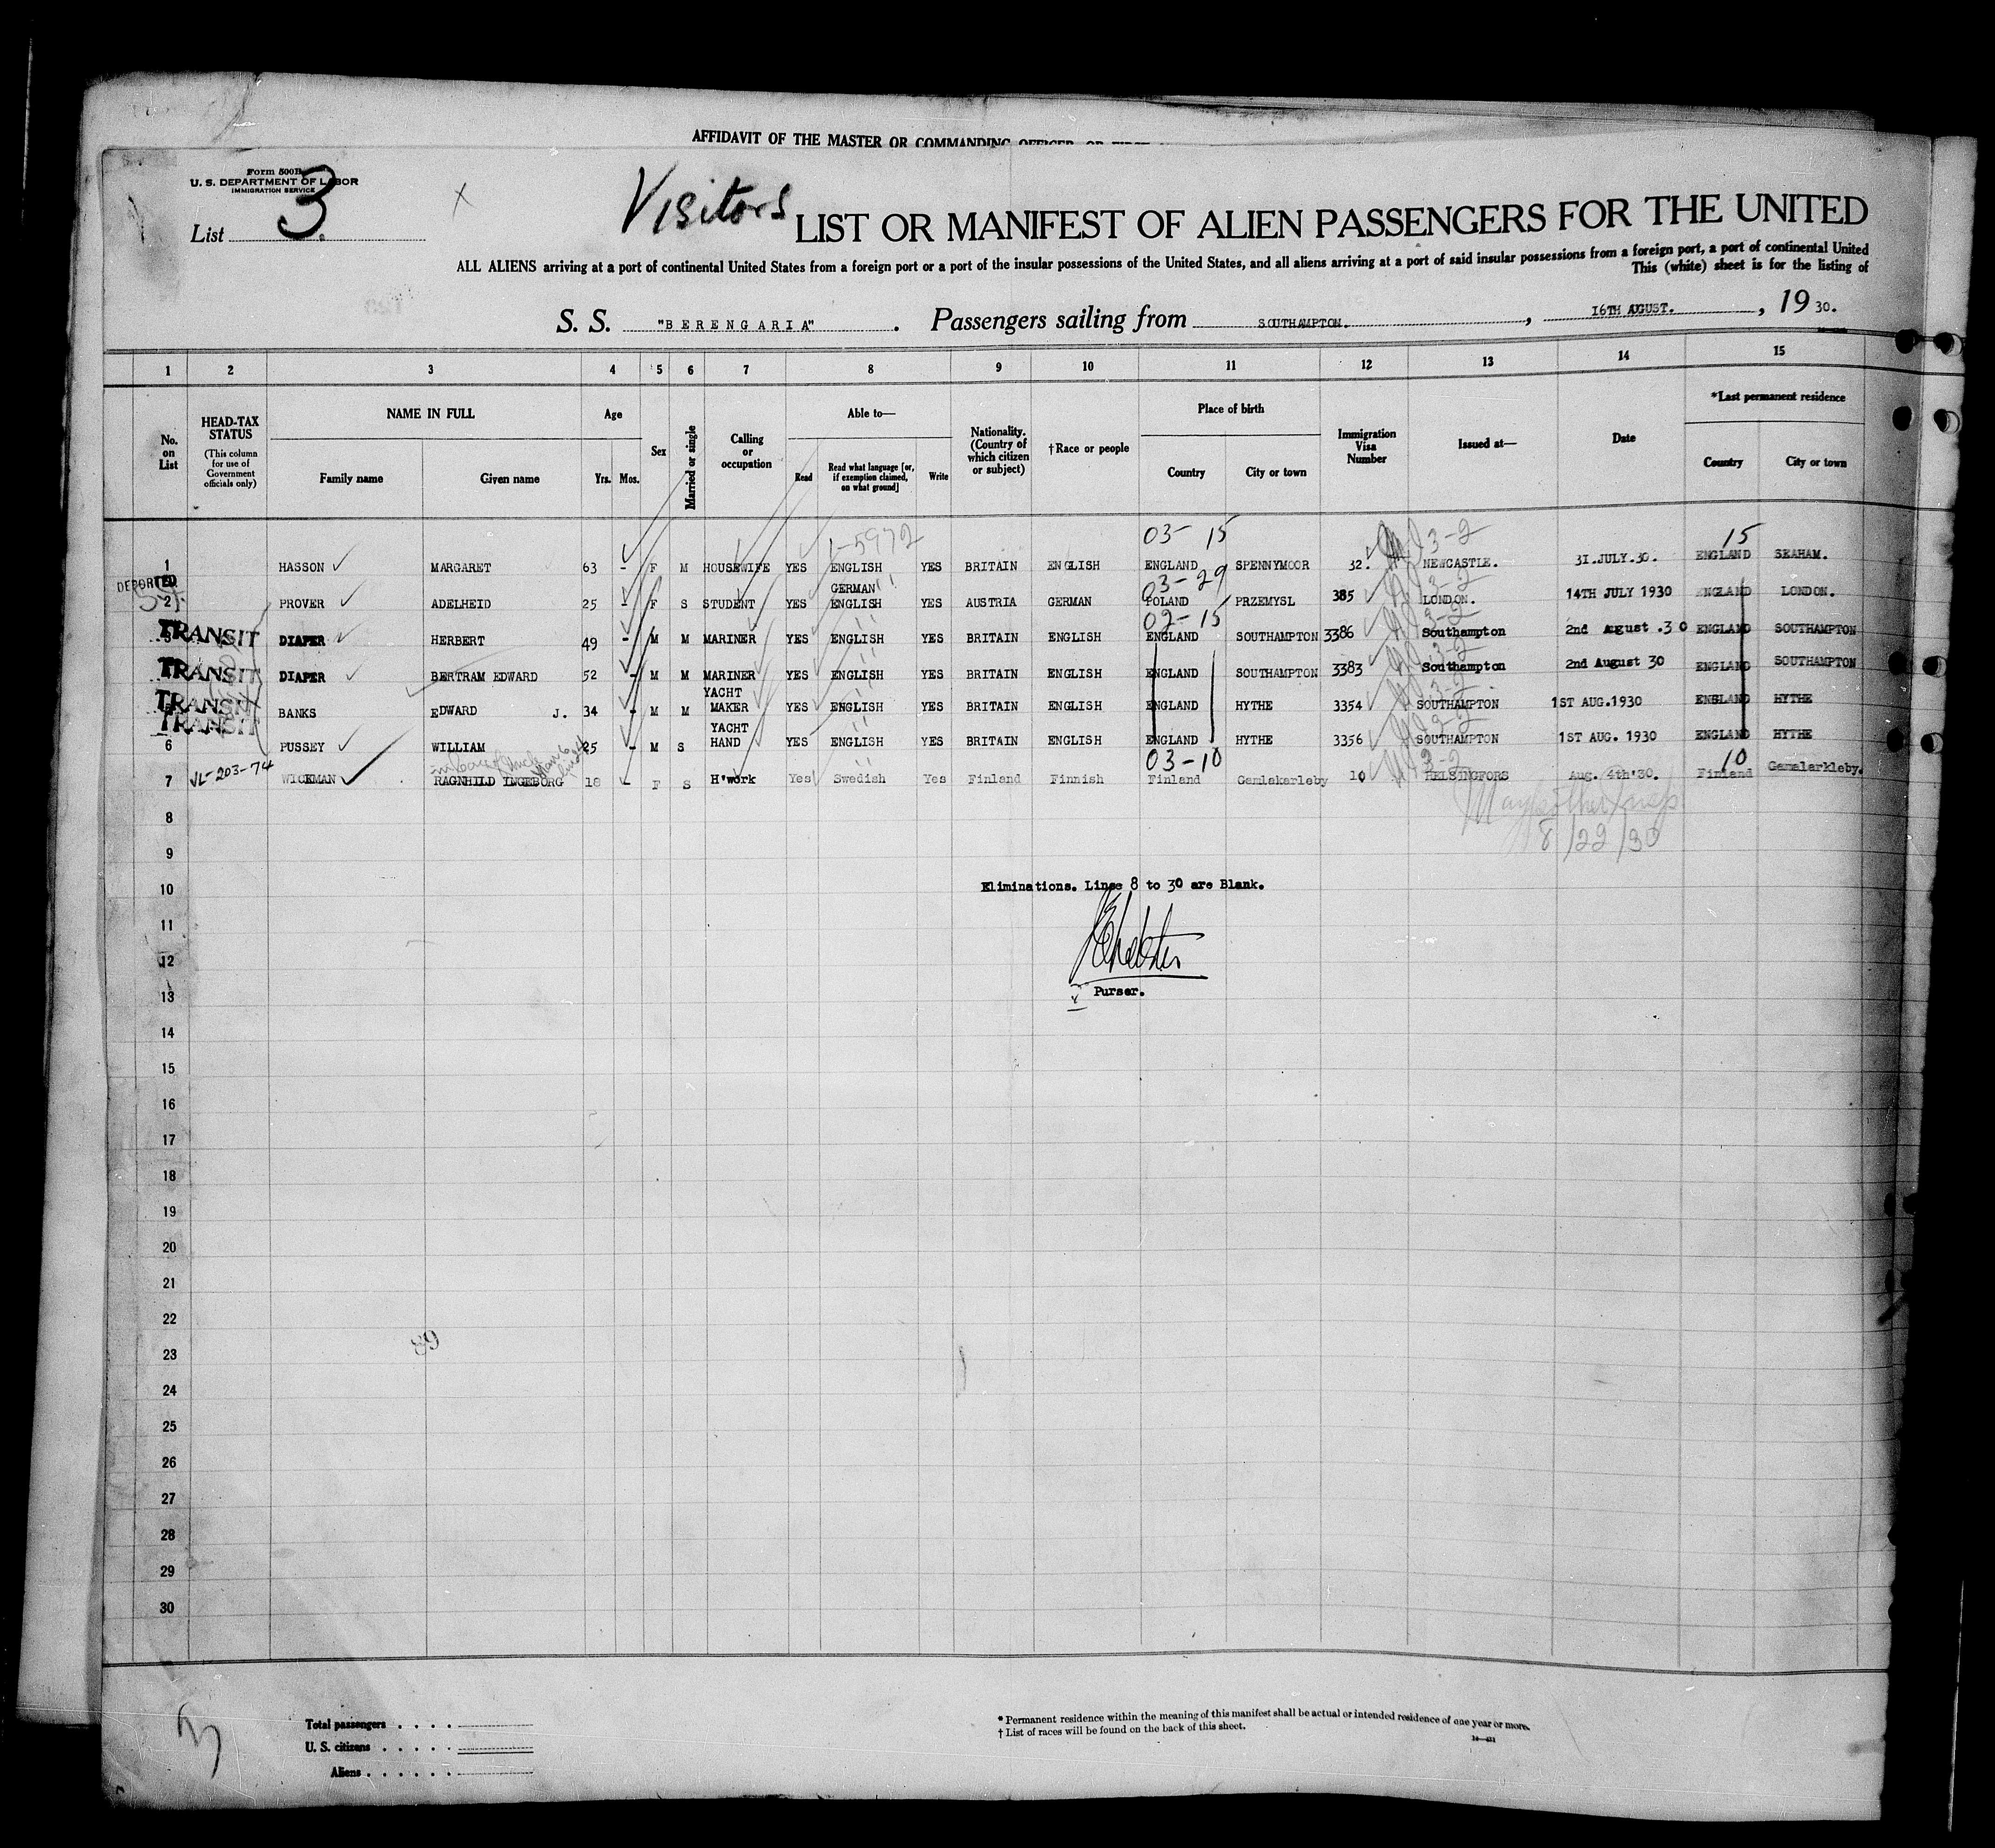 AFFIDAVIT OF THE MASTER OR COMMANDING OFFICER, OR FIRST
Form 500B
U. S. DEPARTMENT OF LABOR
IMMIGRATION SERVICE
List 3.
Visitors
LIST OR MANIFEST OF ALIEN PASSENGERS FOR THE UNITED
ALL ALIENS arriving at a port of continental United States from a foreign port or a port of the insular possessions of the United States, and all aliens arriving at a port of said insular possessions from a foreign port, a port of continental United
This (white) sheet is for the listing of
S. S. "BERENGARIA" . Passengers sailing from SOUTHAMPTON. , 16TH AUGUST. , 19 30.
1 2 3 4 5 6 7 8 9 10 11 12 13 14 15
No. on List
HEAD-TAX STATUS (This column for use of Government officials only)
NAME IN FULL
Family name Given name
Age
Yrs. Mos.
Sex
Married or single
Calling or occupation
Able to—
Read Read what language [or, if exemption claimed, on what ground] Write
Nationality. (Country of which citizen or subject)
†Race or people
Place of birth
Country City or town
Immigration Visa Number
Issued at—
Date
*Last permanent residence
Country City or town
1-5972 03- 15 3-2 15
1 HASSON MARGARET 63 - F M HOUSEWIFE YES ENGLISH YES BRITAIN ENGLISH ENGLAND SPENNYMOOR 32. NEWCASTLE. 31.JULY.30. ENGLAND SEAHAM.
DEPORTED
GERMAN 03-29 3-2
2 PROVER ADELHEID 25 - F S STUDENT YES ENGLISH YES AUSTRIA GERMAN POLAND PRZEMYSL 385 LONDON. 14TH JULY 1930 ENGLAND LONDON.
02-15 3-2
TRANSIT 3 DIAPER HERBERT 49 - M M MARINER YES ENGLISH YES BRITAIN ENGLISH ENGLAND SOUTHAMPTON 3386 Southampton 2nd August .30 ENGLAND SOUTHAMPTON
TRANSIT DIAPER BERTRAM EDWARD 52 - M M MARINER YES ENGLISH YES BRITAIN ENGLISH ENGLAND SOUTHAMPTON 3383 Southampton 2nd August 30 ENGLAND SOUTHAMPTON
TRANSIT BANKS EDWARD J. 34 - M M YACHT MAKER YES ENGLISH YES BRITAIN ENGLISH ENGLAND HYTHE 3354 SOUTHAMPTON 1ST AUG.1930 ENGLAND HYTHE
TRANSIT
6 PUSSEY WILLIAM 25 - M S YACHT HAND YES ENGLISH YES BRITAIN ENGLISH ENGLAND HYTHE 3356 SOUTHAMPTON 1ST AUG. 1930 ENGLAND HYTHE
03-10 3-2 10
7 VL-203-74 WICKMAN RAGNHILD INGEBORG 18 - F S H'work Yes Swedish Yes Finland Finnish Finland Gamlakarleby 10 HELSINGFORS Aug. 4th'30. Finland Gamalarkleby.
8
8/22/30
9
10
Eliminations. Lines 8 to 30 are Blank.
11
12
13
Purser.
14
15
16
17
18
19
20
21
22
23
24
25
26
27
28
29
30
Total passengers
U. S. citizens
Aliens
* Permanent residence within the meaning of this manifest shall be actual or intended residence of one year or more.
† List of races will be found on the back of this sheet.